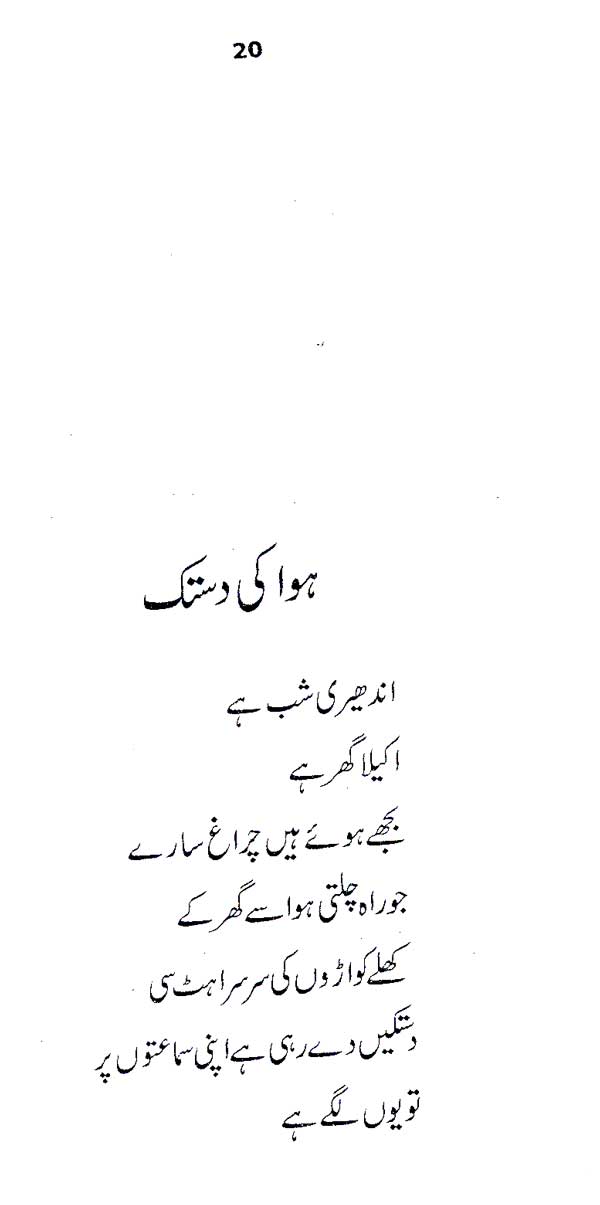 20
ہوا کی دستک
اندھیری شب ہے
اکیلا گھر ہے
بجھے ہوئے ہیں چراغ سارے
جو راہ چلتی ہوا سے گھر کے
کھلے کواڑوں کی سرسراہٹ سی
دستکیں دے رہی ہے اپنی سماعتوں پر
تو یوں لگے ہے